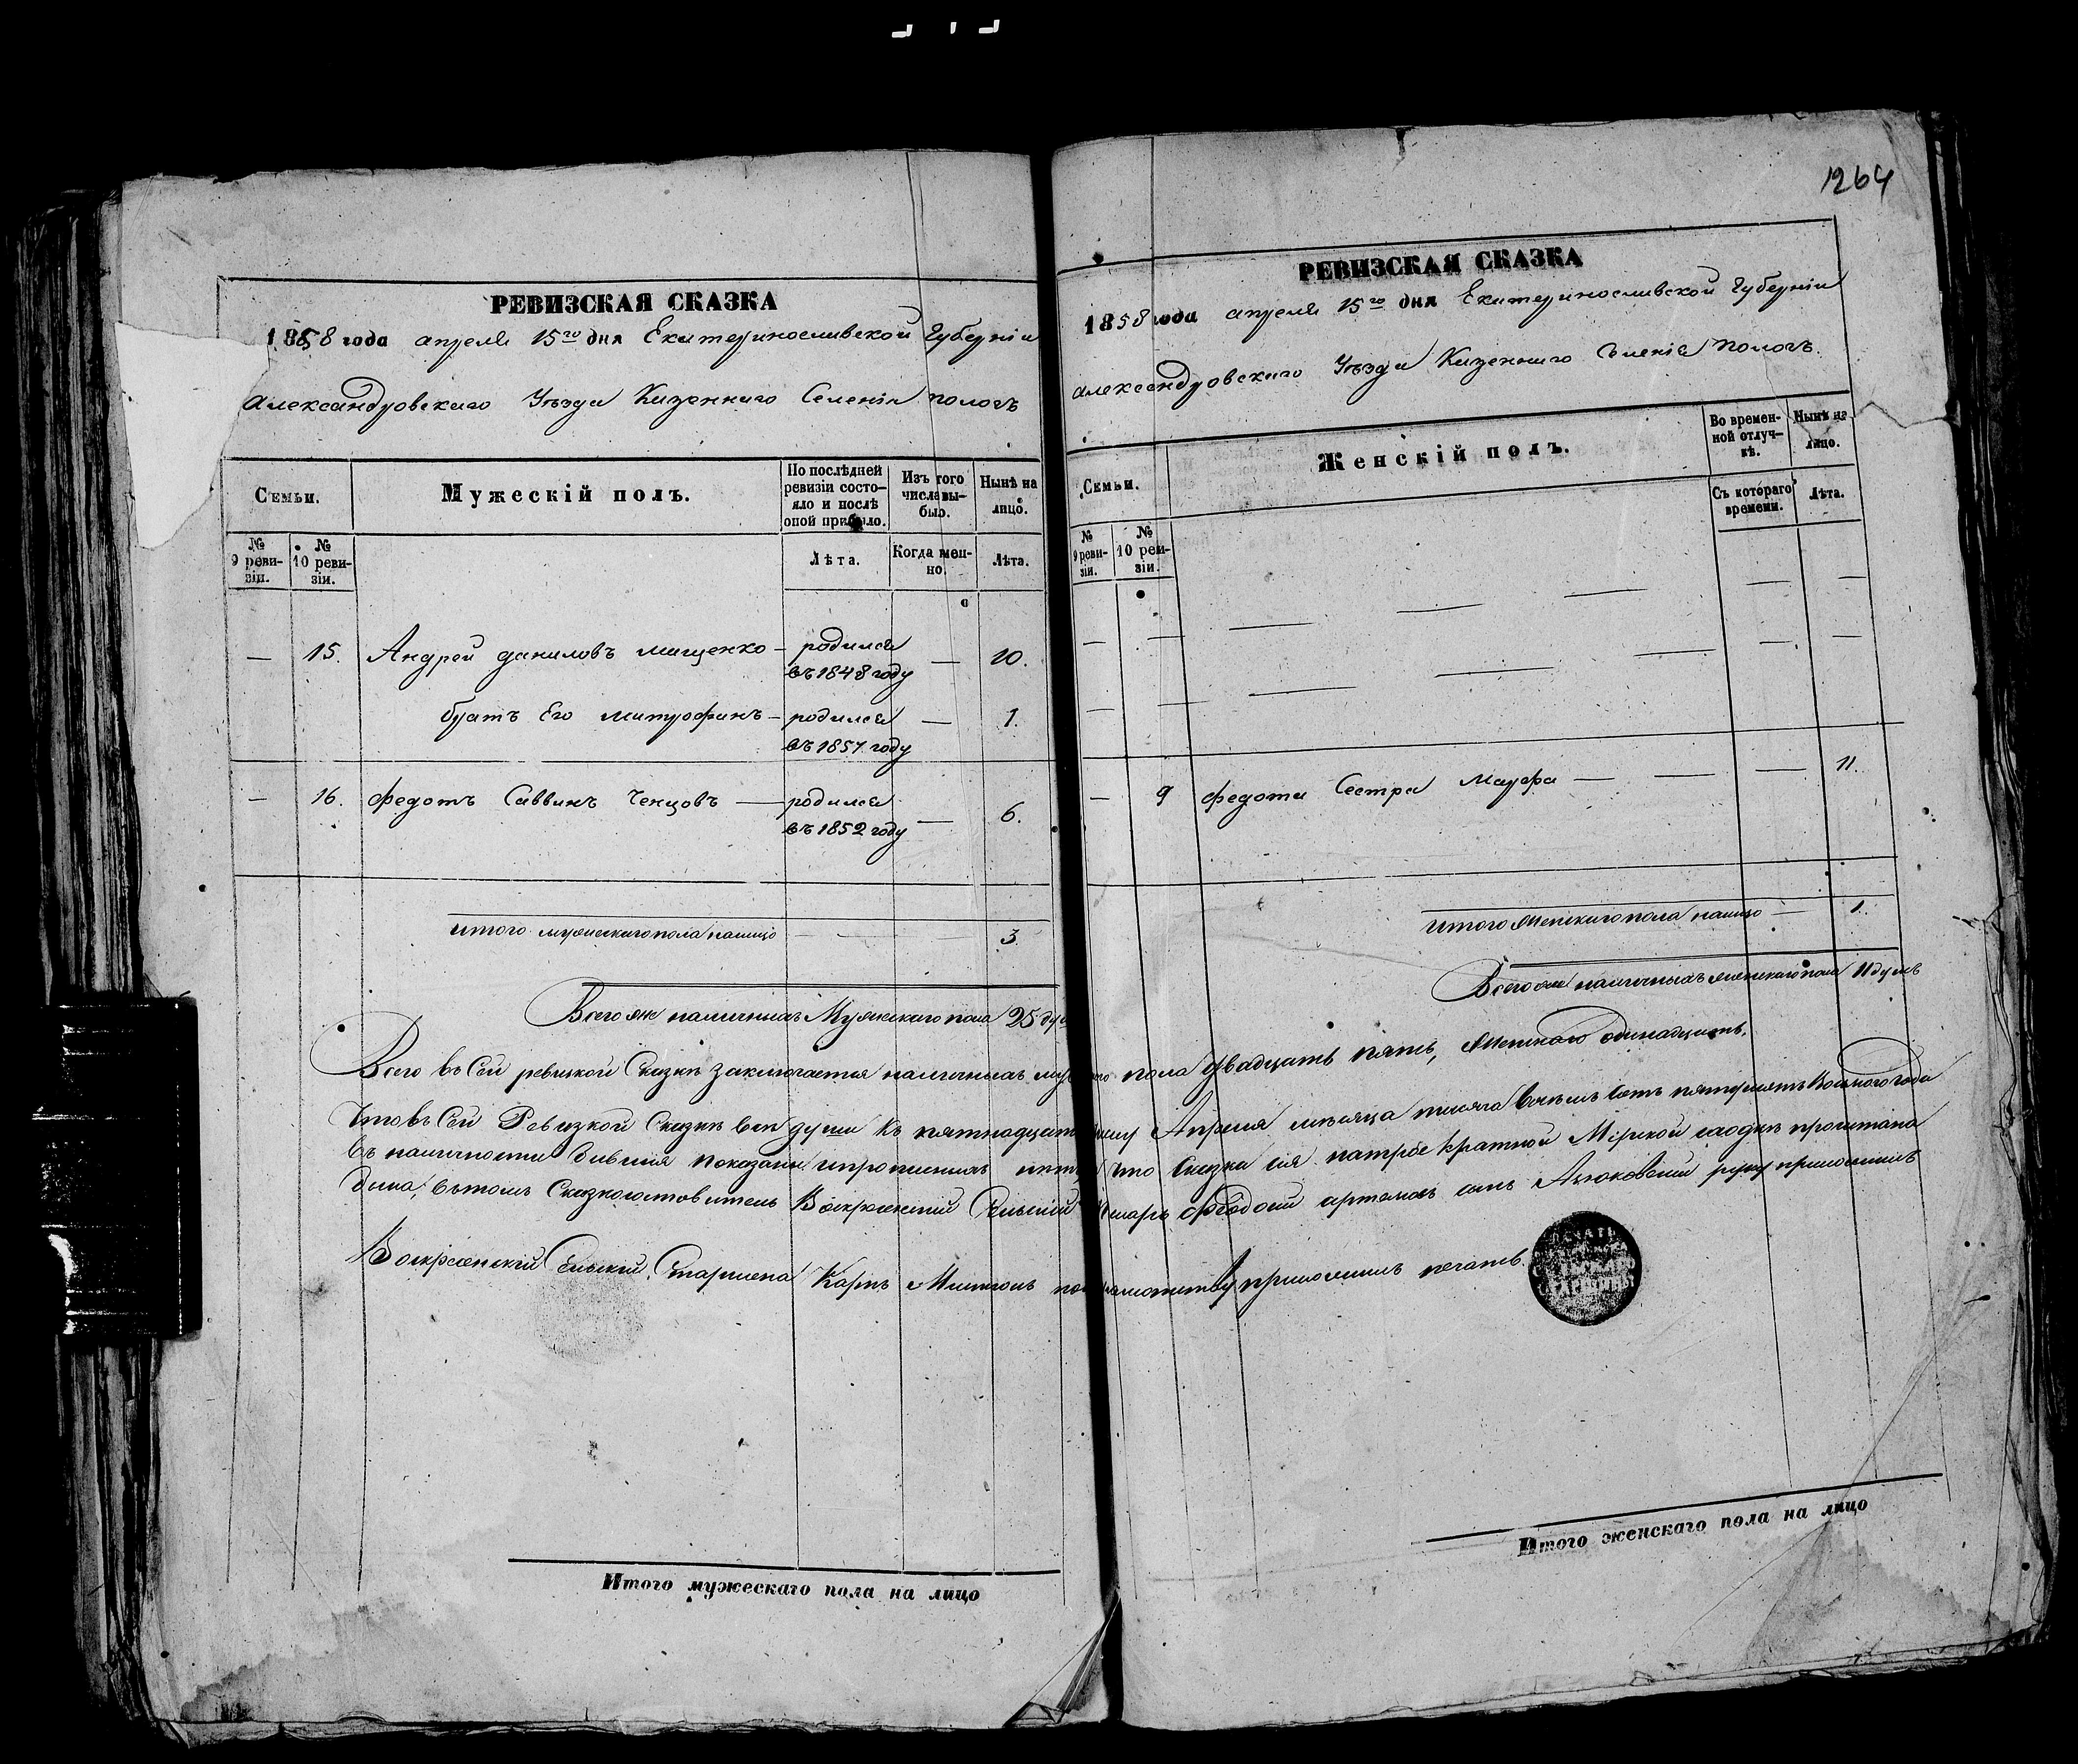 1264
РЕВИЗСКАЯ СКАЗКА
1858 года апреля 15го дня Екатеринославской Губерніи
Александровскаго Уѣзда Казеннаго Селенія Пологъ
Семьи.
Мужескій полъ.
По послѣдней ревизіи состо-
яло и послѣ оной прибыло.
Изъ того числа вы-
было.
Нынѣ на лицо.
№ 9 реви-
зіи.
№ 10 реви-
зіи.
Лѣта.
Когда имен-
но.
Лѣта.
— 15. Андрей Даниловъ Мащенко — родился — 10.
въ 1848 году
братъ Его Митрофанъ — родился — 1.
въ 1857 году
— 16. Федотъ Саввинъ Ченцовъ — родился — 6.
въ 1852 году
Итого мужескаго пола налицо — — — 3
Всего же наличныхъ Мужескаго пола 25 душ
РЕВИЗСКАЯ СКАЗКА
1858 года апреля 15го дня Екатеринославской Губерніи
Александровскаго Уѣзда Казеннаго Селенія Пологъ.
Семьи.
Женскій полъ.
Во времен-
ной отлуч-
кѣ.
Нынѣ на лицо.
№ 9 реви-
зіи.
№ 10 реви-
зіи.
Съ котораго времени.
Лѣта.
— 9 Федота Сестра Марфа — — — 11.
Итого Женскаго пола налицо — 1.
Всего же наличныхъ женскаго пола 11 душъ
Всего въ Сей ревизкой Сказкѣ заключается наличныхъ пола двадцать пять, Женскаго одинадцать.
Что въ Сей Ревизкой Сказкѣ все души къ пятнадцатому Апреля мѣсяца тысяча восемь сотъ пятдесятъ восмого года
въ наличности бывшія показаны и что Сказка сія Мірской сходкѣ прочитана
была, въ томъ Воскресенскій Сельскій Писарь сынъ руку приложилъ
Воскресенскій Сельскій Старшена Карпъ приложилъ печать.
Итого мужескаго пола на лицо
Итого женскаго пола на лицо